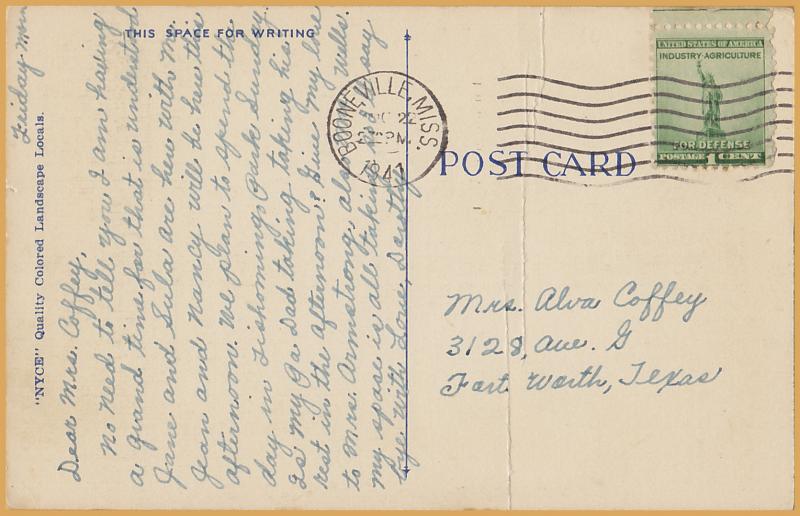 THIS SPACE FOR WRITING
"NYCE" Quality Colored Landscape Locals.
Friday
Dear Mrs. Coffey,
No need to tell you I am having
a grand time for that is understood
Jane and Lula are here with me
Jean and Nancy will be here this
afternoon. We plan to spend the
day in Tishomingo Park Sunday
as my Ga Dad taking his
rest in the afternoon? Give my love
to Mrs. Armstrong, also Mrs. Wells.
my space is all taken so I say
bye. With Love, Dorothy
BOONEVILLE, MISS.
22
PM
1941
POST CARD
UNITED STATES OF AMERICA
INDUSTRY-AGRICULTURE
FOR DEFENSE
POSTAGE 1 CENT
Mrs. Alva Coffey
3128, Ave. G
Fort Worth, Texas